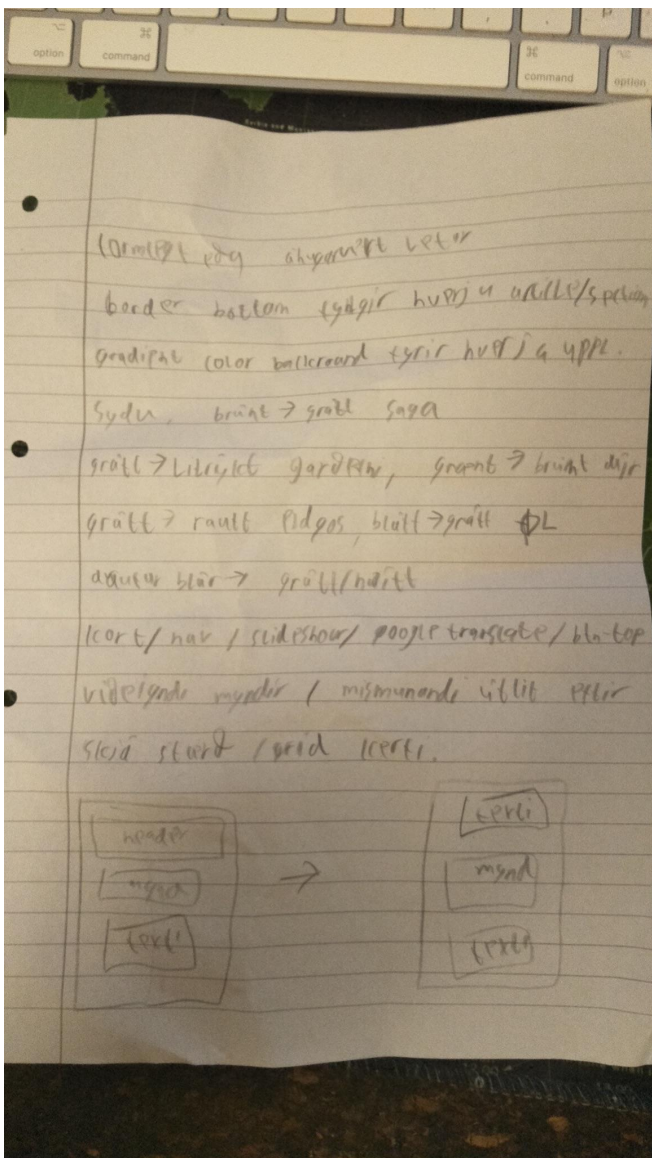 ⌘
option
command
⌘
command
option
border bottom hverja article/section
gradient color background fyrir hverja uppl.
Síðu, brúnt → grátt Saga
grátt → Litríkt garðum, grænt → brúnt dýr
grátt → rautt Eldgos, blátt → grátt ϕL
blár → grátt/hvítt
kort / nav / slideshow / google translate / btn-top
viðeigndi myndir / mismunandi útlit eftir
skjá stærð / grid kerfi.
header
mynd
texti
→
texti
mynd
texti